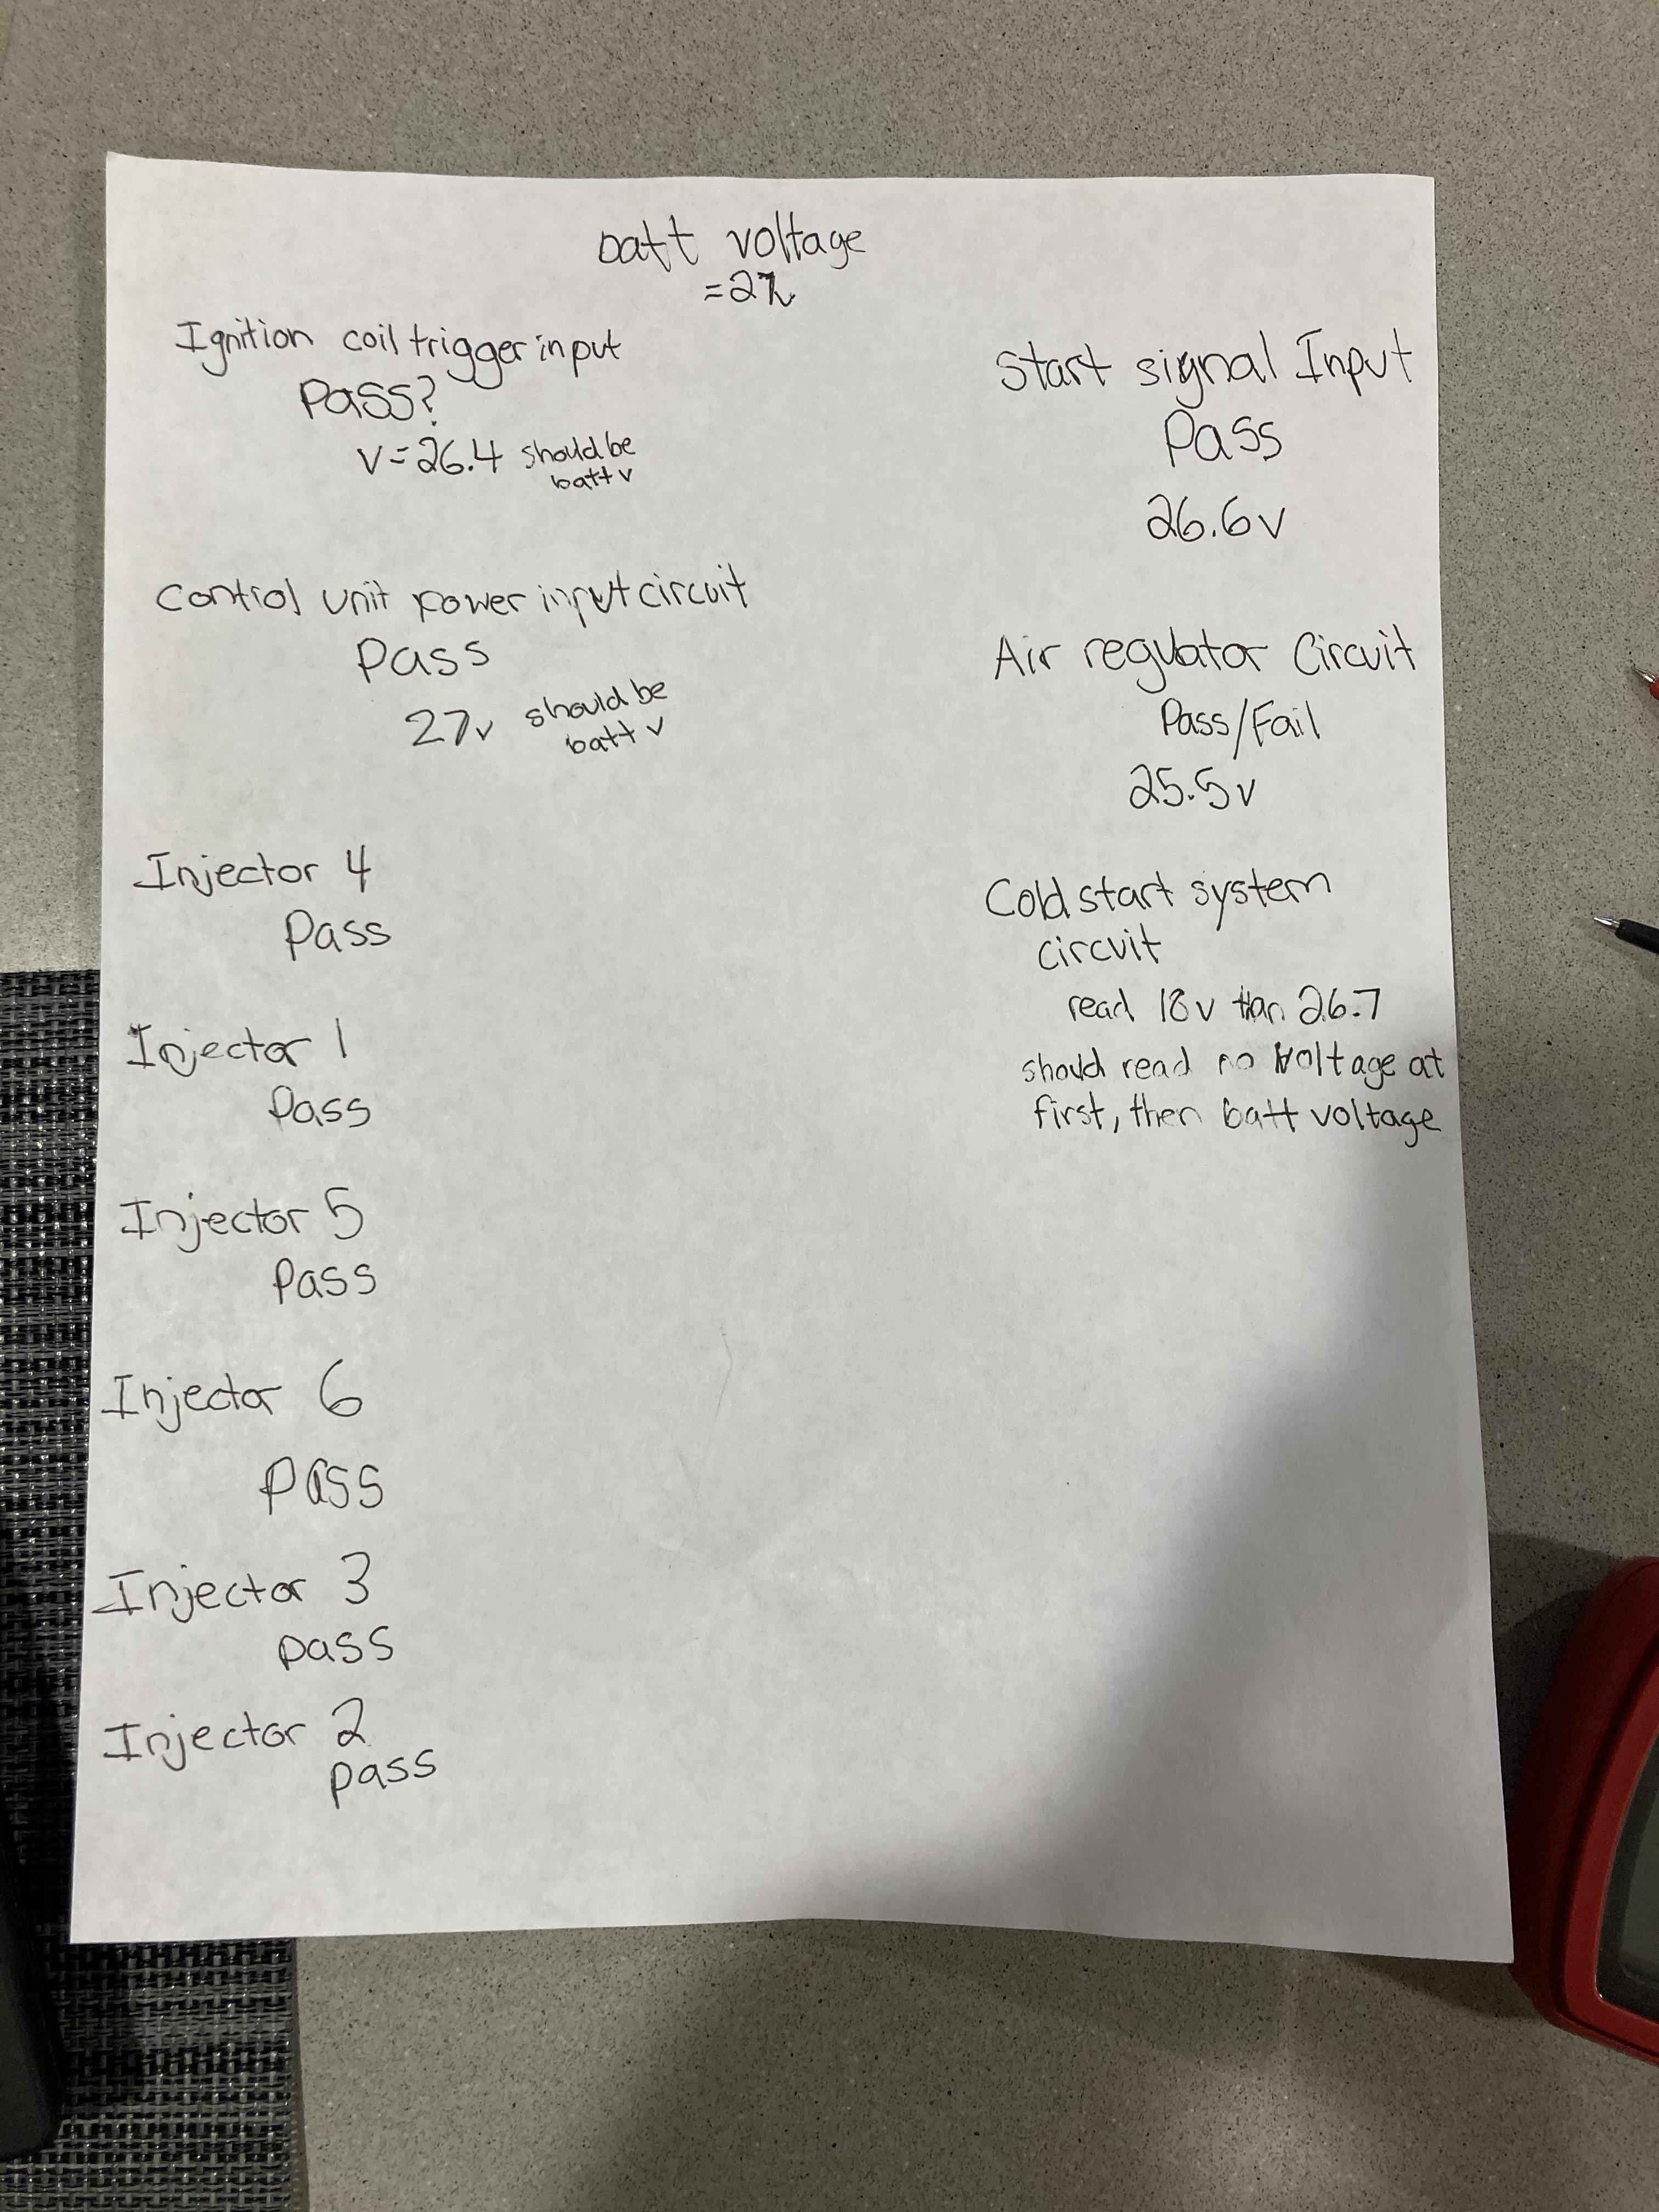 batt voltage
=27v
Ignition coil trigger input
Pass?
v=26.4 should be
batt v
Control unit power input circuit
Pass
27v should be
batt v
Injector 4
Pass
Injector 1
Pass
Injector 5
Pass
Injector 6
Pass
Injector 3
pass
Injector 2
pass
Start signal Input
Pass
26.6v
Air regulator Circuit
Pass/Fail
25.5v
Cold start system
circuit
read 18v than 26.7
should read no voltage at
first, then batt voltage